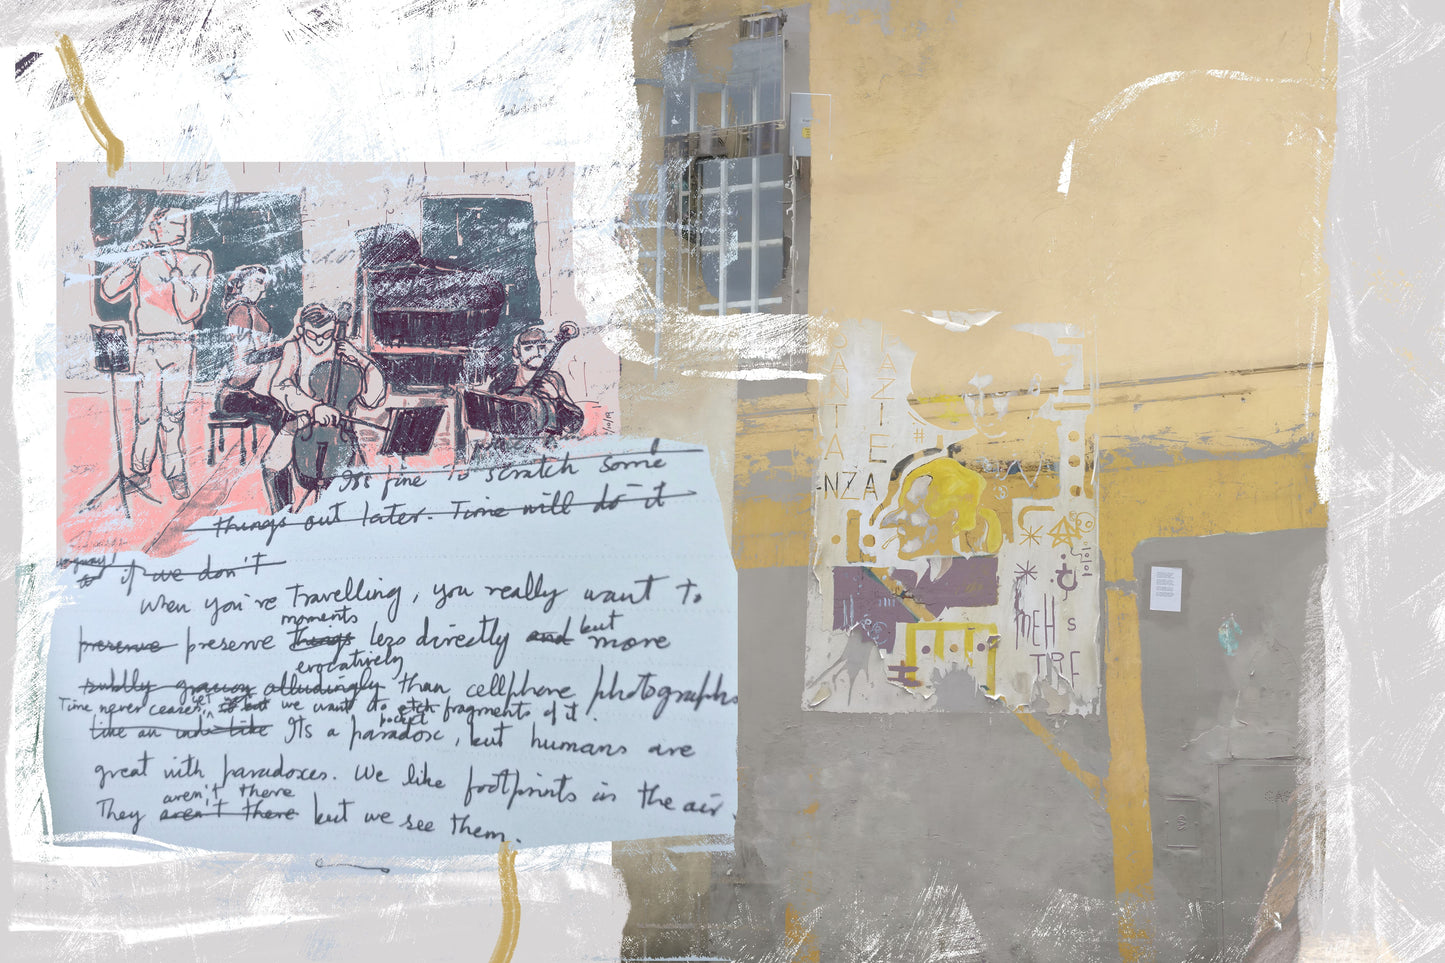 It's fine to scratch some
things out later. Time will do it
if we don't
When you're travelling, you really want to
moments
but
preserve preserve things less directly and more
evocatively
subtly alludingly than cellphone photographs
Time never ceases, we want to etch fragments of it.
pocket
like an like It's a paradox, but humans are
great with paradoxes. We like footprints in the air.
aren't there
They aren't there but we see them.
SANTA
AZIE
NZA
MEH
S
TIRE